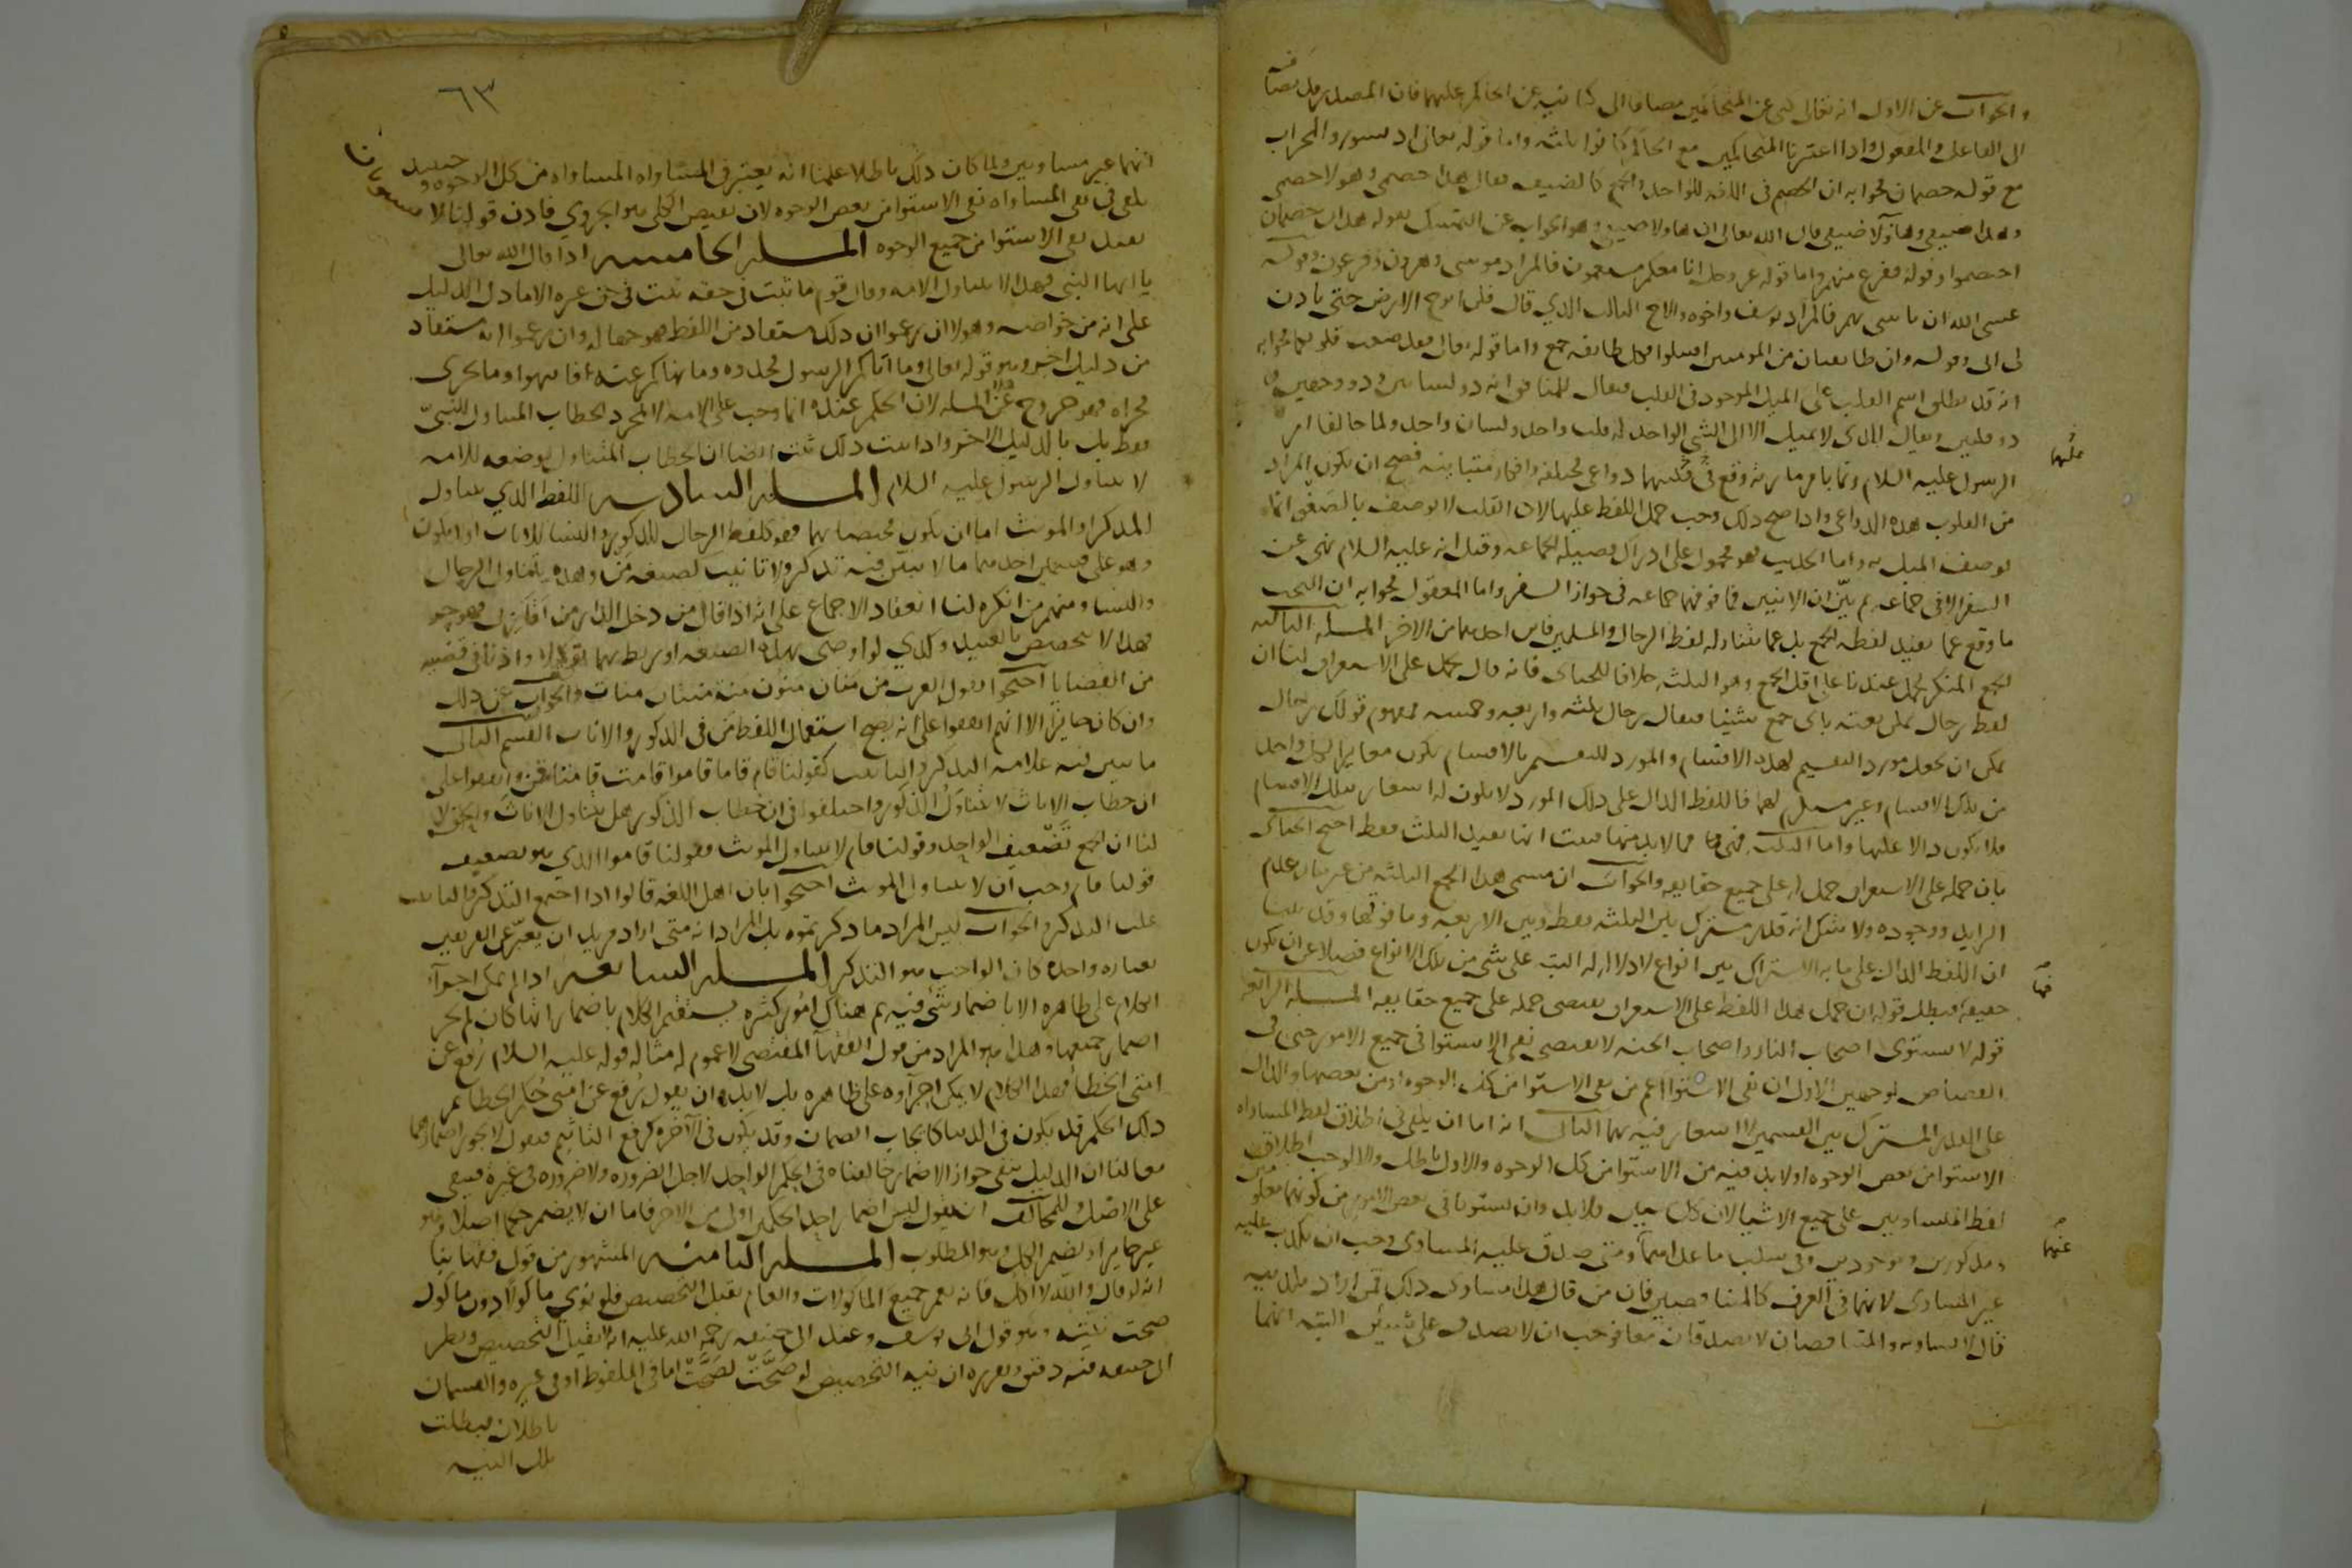 والجواب عن الاول انه تعالى كنى عن المتحاكمين مضافا الى كنايته عن الحاكم عليهما فان المصدر قد يضاف
الى الفاعل والمفعول واذا اعتبرنا المتحاكمين مع الحاكم كانوا ثلثه واما قوله تعالى اذ تسوروا المحراب
مع قوله خصمان فجوابه ان الخصم في اللغة للواحد والجمع كالضيف يقال هذا خصمي وهولا خصمي
وهذا ضيفي وهاولا ضيفي قال الله تعالى ان هاولا ضيفي وهو الجواب عن التمسك بقوله هذان خصمان
اختصموا وقوله ففزع منهم واما قوله عز وجل انا معكم مستمعون فالمراد موسى وهرون وفرعون وقوله
عسى الله ان ياتيني بهم فالمراد يوسف واخوه والاخ الثالث الذي قال فلن ابرح الارض حتى ياذن
لي ابي وقوله وان طايفتان من المومنين اقتتلوا فكل طايفه جمع واما قوله تعالى فقد صغت قلوبكما فجوابه
انه قد يطلق اسم القلب على الميل الموجود في القلب فيقال للمنافق انه ذو لسانين وذو وجهين و
ذو قلبين ويقال للذي لا يميل الا الى الشي الواحد له قلب واحد ولسان واحد ولما خالفتا امر
الرسول عليه السلام وهمتا بامر مارية وقع في قلبيهما دواعي مختلفة وافكار متباينه فصح ان يكون المراد
عليهما
من القلوب هذه الدواعي واذا صح ذلك وجب حمل اللفظ عليها لان القلب لا يوصف بالصغى انما
يوصف الميل به واما الحديث فهو محمول على ادراك فضيلة الجماعه وقيل انه عليه السلام نهى عن
السفر الا في جماعة ثم بيّن ان الاثنين فما فوقهما جماعه في جواز السفر واما المعقول فجوابه ان البحث
ما وقع عما يفيد لفظه الجمع بل عما تتناوله لفظ الرجال والمسلمين فاين احدهما من الاخر المسلة الثالثه
الجمع المنكر يحمل عندنا على اقل الجمع وهو الثلثه خلافا للجبائي فانه قال يحمل على الاستغراق لنا ان
لفظ رجال يمكن نعته باي جمع شئنا فيقال رجال ثلثه واربعه وخمسه فمفهوم قولك رجال
يمكن ان يجعل مورد التقسيم لهذه الاقسام والمورد للتقسيم بالاقسام يكون مغايرا لكل واحد
من تلك الاقسام وغير مستلزم لها فاللفظ الدال على ذلك المورد لا يكون له اشعار بتلك الاقسام
فلا يكون دالا عليها واما الثلثه فهي مما لابد منها فثبت انها تفيد الثلث فقط احتج الجبائي
بان حمله على الاستغراق حمل له على جميع حقايقه والجواب ان مسمى هذا الجمع الثلثه من غير بيان عدم
الزايد ووجوده ولا شك انه قدر مشترك بين الثلثه فقط وبين الاربعه وما فوقها وقد بينا
ان اللفظ الدال على ما به الاشتراك بين انواع لا دلاله له البته على شي من تلك الانواع فضلا عن ان يكون
فيها
حقيقة فبطل قوله ان حمل هذا اللفظ على الاستغراق يقتضي حمله على جميع حقايقه المسلة الرابعه
قوله لا يستوي اصحاب النار واصحاب الجنه لا يقتضي نفي الاستوا في جميع الامور حتى في
القصاص لوجهين الاول ان نفي الاستوا اعم من نفي الاستوا من كل الوجوه او من بعضها والدال
على القدر المشترك بين القسمين لا اشعار فيه بهما الثاني انه اما ان يكفي في اطلاق لفظ المساواه
الاستوا من بعض الوجوه او لابد فيه من الاستوا من كل الوجوه والاول باطل والا لوجب اطلاق
لفظ المتساويين على جميع الاشيا لان كل شيين فلابد وان يستويا في بعض الامور من كونهما معلومين
ومذكورين وموجودين وفي سلب ما عداهما ومتى صدق عليه المساوي وجب ان يكذب عليه
عنهما
غير المساوي لانهما في العرف كالمتناقضين فان من قال هذا يساوي ذلك فمن اراد تكذيبه
قال لا يساويه والمتناقضان لا يصدقان معا فوجب ان لا يصدق على شيئين البته انهما
٦٣
انهما غير متساويين ولما كان ذلك باطلا علمنا انه يعتبر في المساواه المساواه من كل الوجوه وحينيذ
يكفي في نفي المساواه نفي الاستوا من بعض الوجوه لان نقيض الكلي هو الجزوي فاذن قولنا لا يستويان
يفيد نفي الاستوا من جميع الوجوه المسلة الخامسه اذا قال الله تعالى
يا ايها النبي فهذا لا يتناول الامه وقال قوم ما ثبت في حقه ثبت في حق غيره الا ما دل الدليل
على انه من خواصه وهولا ان زعموا ان ذلك مستفاد من اللفظ فهو جهاله وان زعموا انه مستفاد
من دليل اخر وهو قوله تعالى وما آتاكم الرسول فخذوه وما نهاكم عنه فانتهوا وما يجري
مجراه فهو خروج عن المسلة لان الحكم عنده انما وجب على الامة لا بمجرد الخطاب المتناول للنبيّ
فقط بل بالدليل الاخر واذا ثبت ذلك ثبت ايضا ان الخطاب المتناول بوضعه للامه
لا يتناول الرسول عليه السلام المسلة السادسه اللفظ الذي يتناول
المذكر والمونث اما ان يكون مختصا بهما فهو كلفظ الرجال للذكور والنسا للاناث او لا يكون
وهو على قسمين احدهما ما لا يتبيّن فيه تذكير ولا تانيث كصيغه مَن وهذه يتناول الرجال
والنسا ومنهم من انكره لنا انعقاد الاجماع على انه اذا قال من دخل الدار من ارقايي فهو حر
فهذا لا يتخصص بالعبيد وكذي لو اوصى بهذه الصيغه او ربط بهما توكيلا او اذنا في قضيه
من القضايا احتجوا بقول العرب من منان منون منة منتان منات والجواب عن ذلك
وان كان جايزا الا انهم اتفقوا على انه يصح استعمال اللفظ مَن في الذكور والاناث القسم الثاني
ما يتبين فيه علامه التذكير والتانيث كقولنا قام قاما قاموا قامت قامتا قمن واتفقوا على
ان خطاب الاناث لا يتناول الذكور واختلفوا في ان خطاب الذكور هل يتناول الاناث والحق لا
لنا ان الجمع تضعيف الواحد وقولنا قام لا يتناول المونث فقولنا قاموا الذي هو تضعيف
قولنا قام وجب ان لا يتناول المونث احتجوا بان اهل اللغه قالوا اذا اجتمع التذكير والتانيث
غلب التذكير والجواب ليس المراد ما ذكرتموه بل المراد انه متى اراد مريد ان يعبّر عن الفريقين
بعباره واحده كان الواجب هو التذكير المسلة السابعه اذا لم يمكن اجرآء
الكلام على ظاهره الا باضمار شي فيه ثم هناك امور كثيره يستقيم الكلام باضمار ايها كان لم يجز
اضمار جميعها وهذا هو المراد من قول الفقهآ المقتضى لا عموم له مثاله قوله عليه السلام رُفع عن
امتي الخطأ فهذا الكلام لا يمكن اجرآوه على ظاهره بل لابد وان يقول رُفع عن امتي حُكم الخطا ثم
ذلك الحكم قد يكون في الدنيا كايجاب الضمان وقد يكون في الآخره كرفع التاثيم فنقول لا يجوز اضمارهما
معا لنا ان الدليل ينفي جواز الاضمار خالفناه في الحكم الواحد لاجل الضروره ولا ضروره في غيره فيبقى
على الاصل وللمخالف ان يقول ليس اضمار احد الحكمين اولى من الاخر فاما ان لا يضمر حكما اصلا وهو
غير جايز او يضمر الكل وهو المطلوب المسلة الثامنه المشهور من قول فقهاينا
انه لو قال والله لا آكل فانه يعم جميع الماكولات والعام يقبل التخصيص فلو نوى ماكولا دون ماكول
صحت نيته وهو قول ابي يوسف وعند ابي حنيفه رحمة الله عليه انه لا يقبل التخصيص ونظر
ابي حنيفه فيه دقيق وتقريره ان نيه التخصيص لو صَحَّتْ لصَحَّتْ اما في الملفوظ او في غيره والقسمان
باطلان فبطلت
تلك النيه